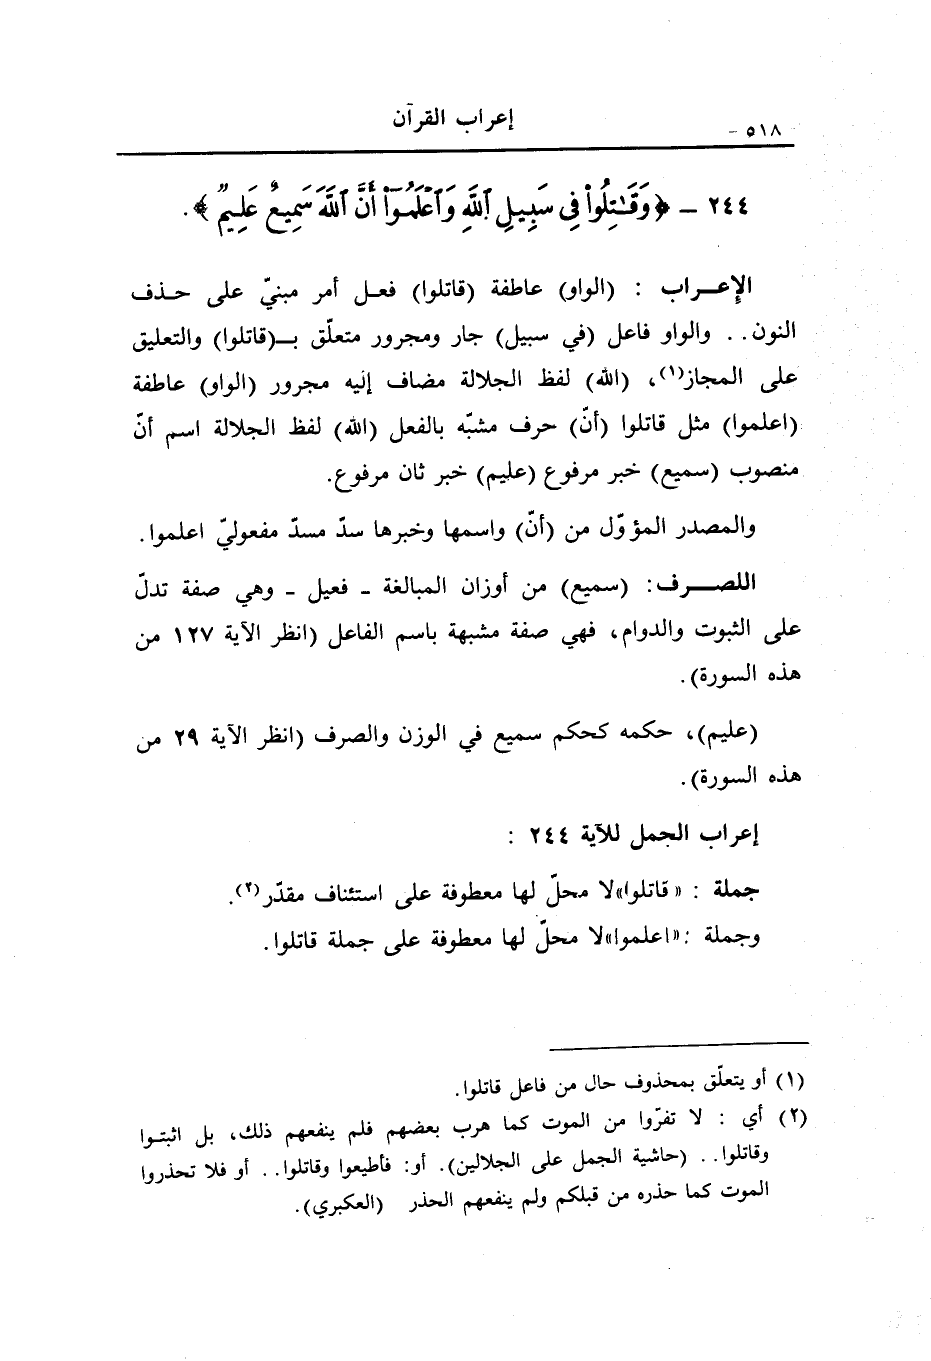 ٥١٨ -
إعراب القرآن
٢٤٤ - ﴿وَقَٰتِلُوا۟ فِى سَبِيلِ ٱللَّهِ وَٱعْلَمُوٓا۟ أَنَّ ٱللَّهَ سَمِيعٌ عَلِيمٌ﴾.
الإعـــراب : (الواو) عاطفة (قاتلوا) فعـل أمر مبنيّ على حـذف
النون.. والواو فاعل (في سبيل) جار ومجرور متعلّق بـ(قاتلوا) والتعليق
على المجاز(١)، (الله) لفظ الجلالة مضاف إليه مجرور (الواو) عاطفة
(اعلموا) مثل قاتلوا (أنّ) حرف مشبّه بالفعل (الله) لفظ الجلالة اسم أنّ
منصوب (سميع) خبر مرفوع (عليم) خبر ثان مرفوع.
والمصدر المؤوّل من (أنّ) واسمها وخبرها سدّ مسدّ مفعوليّ اعلموا.
اللصـــرف: (سميع) من أوزان المبالغة - فعيل - وهي صفة تدلّ
على الثبوت والدوام، فهي صفة مشبهة باسم الفاعل (انظر الآية ١٢٧ من
هذه السورة).
(عليم)، حكمه كحكم سميع في الوزن والصرف (انظر الآية ٢٩ من
هذه السورة).
إعراب الجمل للآية ٢٤٤ :
جملة : «قاتلوا»لا محلّ لها معطوفة على استئناف مقدّر(٢).
وجملة :«اعلموا»لا محلّ لها معطوفة على جملة قاتلوا.
(١) أو يتعلّق بمحذوف حال من فاعل قاتلوا.
(٢) أي : لا تفرّوا من الموت كما هرب بعضهم فلم ينفعهم ذلك، بل اثبتـوا
وقاتلوا.. (حاشية الجمل على الجلالين). أو: فأطيعوا وقاتلوا.. أو فلا تحذروا
الموت كما حذره من قبلكم ولم ينفعهم الحذر (العكبري).